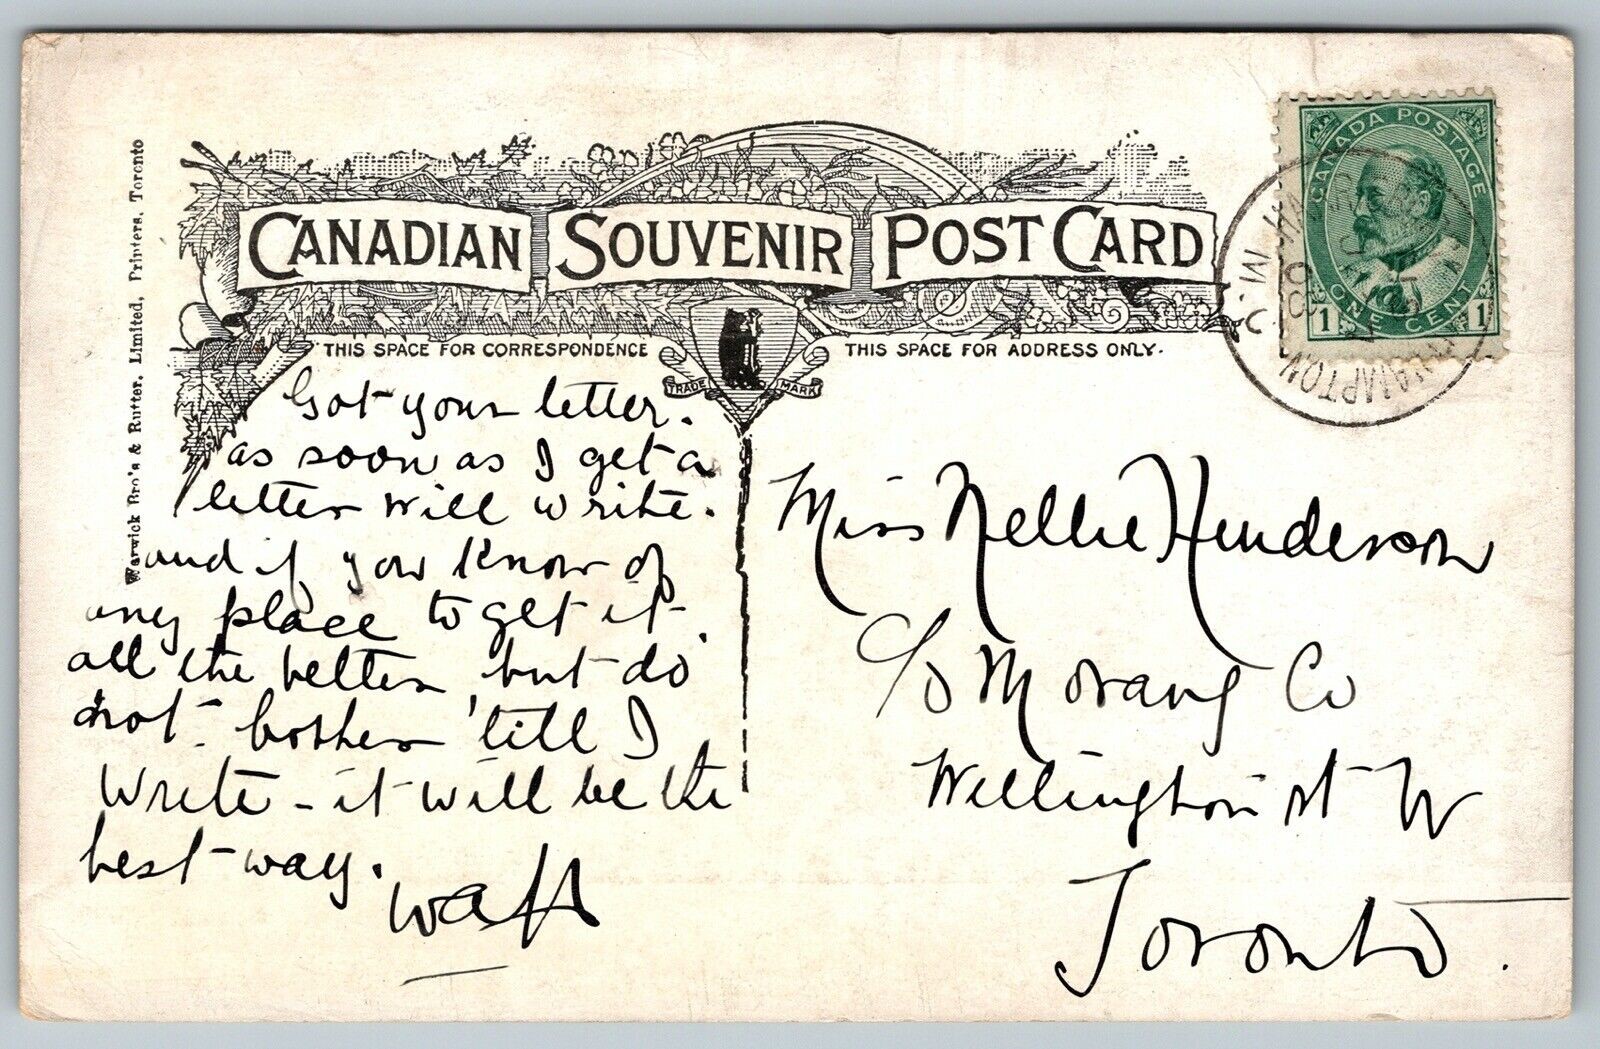 CANADIAN SOUVENIR POST CARD
THIS SPACE FOR CORRESPONDENCE
THIS SPACE FOR ADDRESS ONLY.
TRADE MARK
Warwick Bro's & Rutter, Limited, Printers, Toronto
CANADA POSTAGE
1 ONE CENT 1
HAMPTON
Got your letter.
as soon as I get a
letter will write.
and if you know of
any place to get it
all the better, but do
not bother 'till I
write - it will be the
best way.
Miss Nellie Henderson
c/o Morang Co
Wellington st W
Toronto.